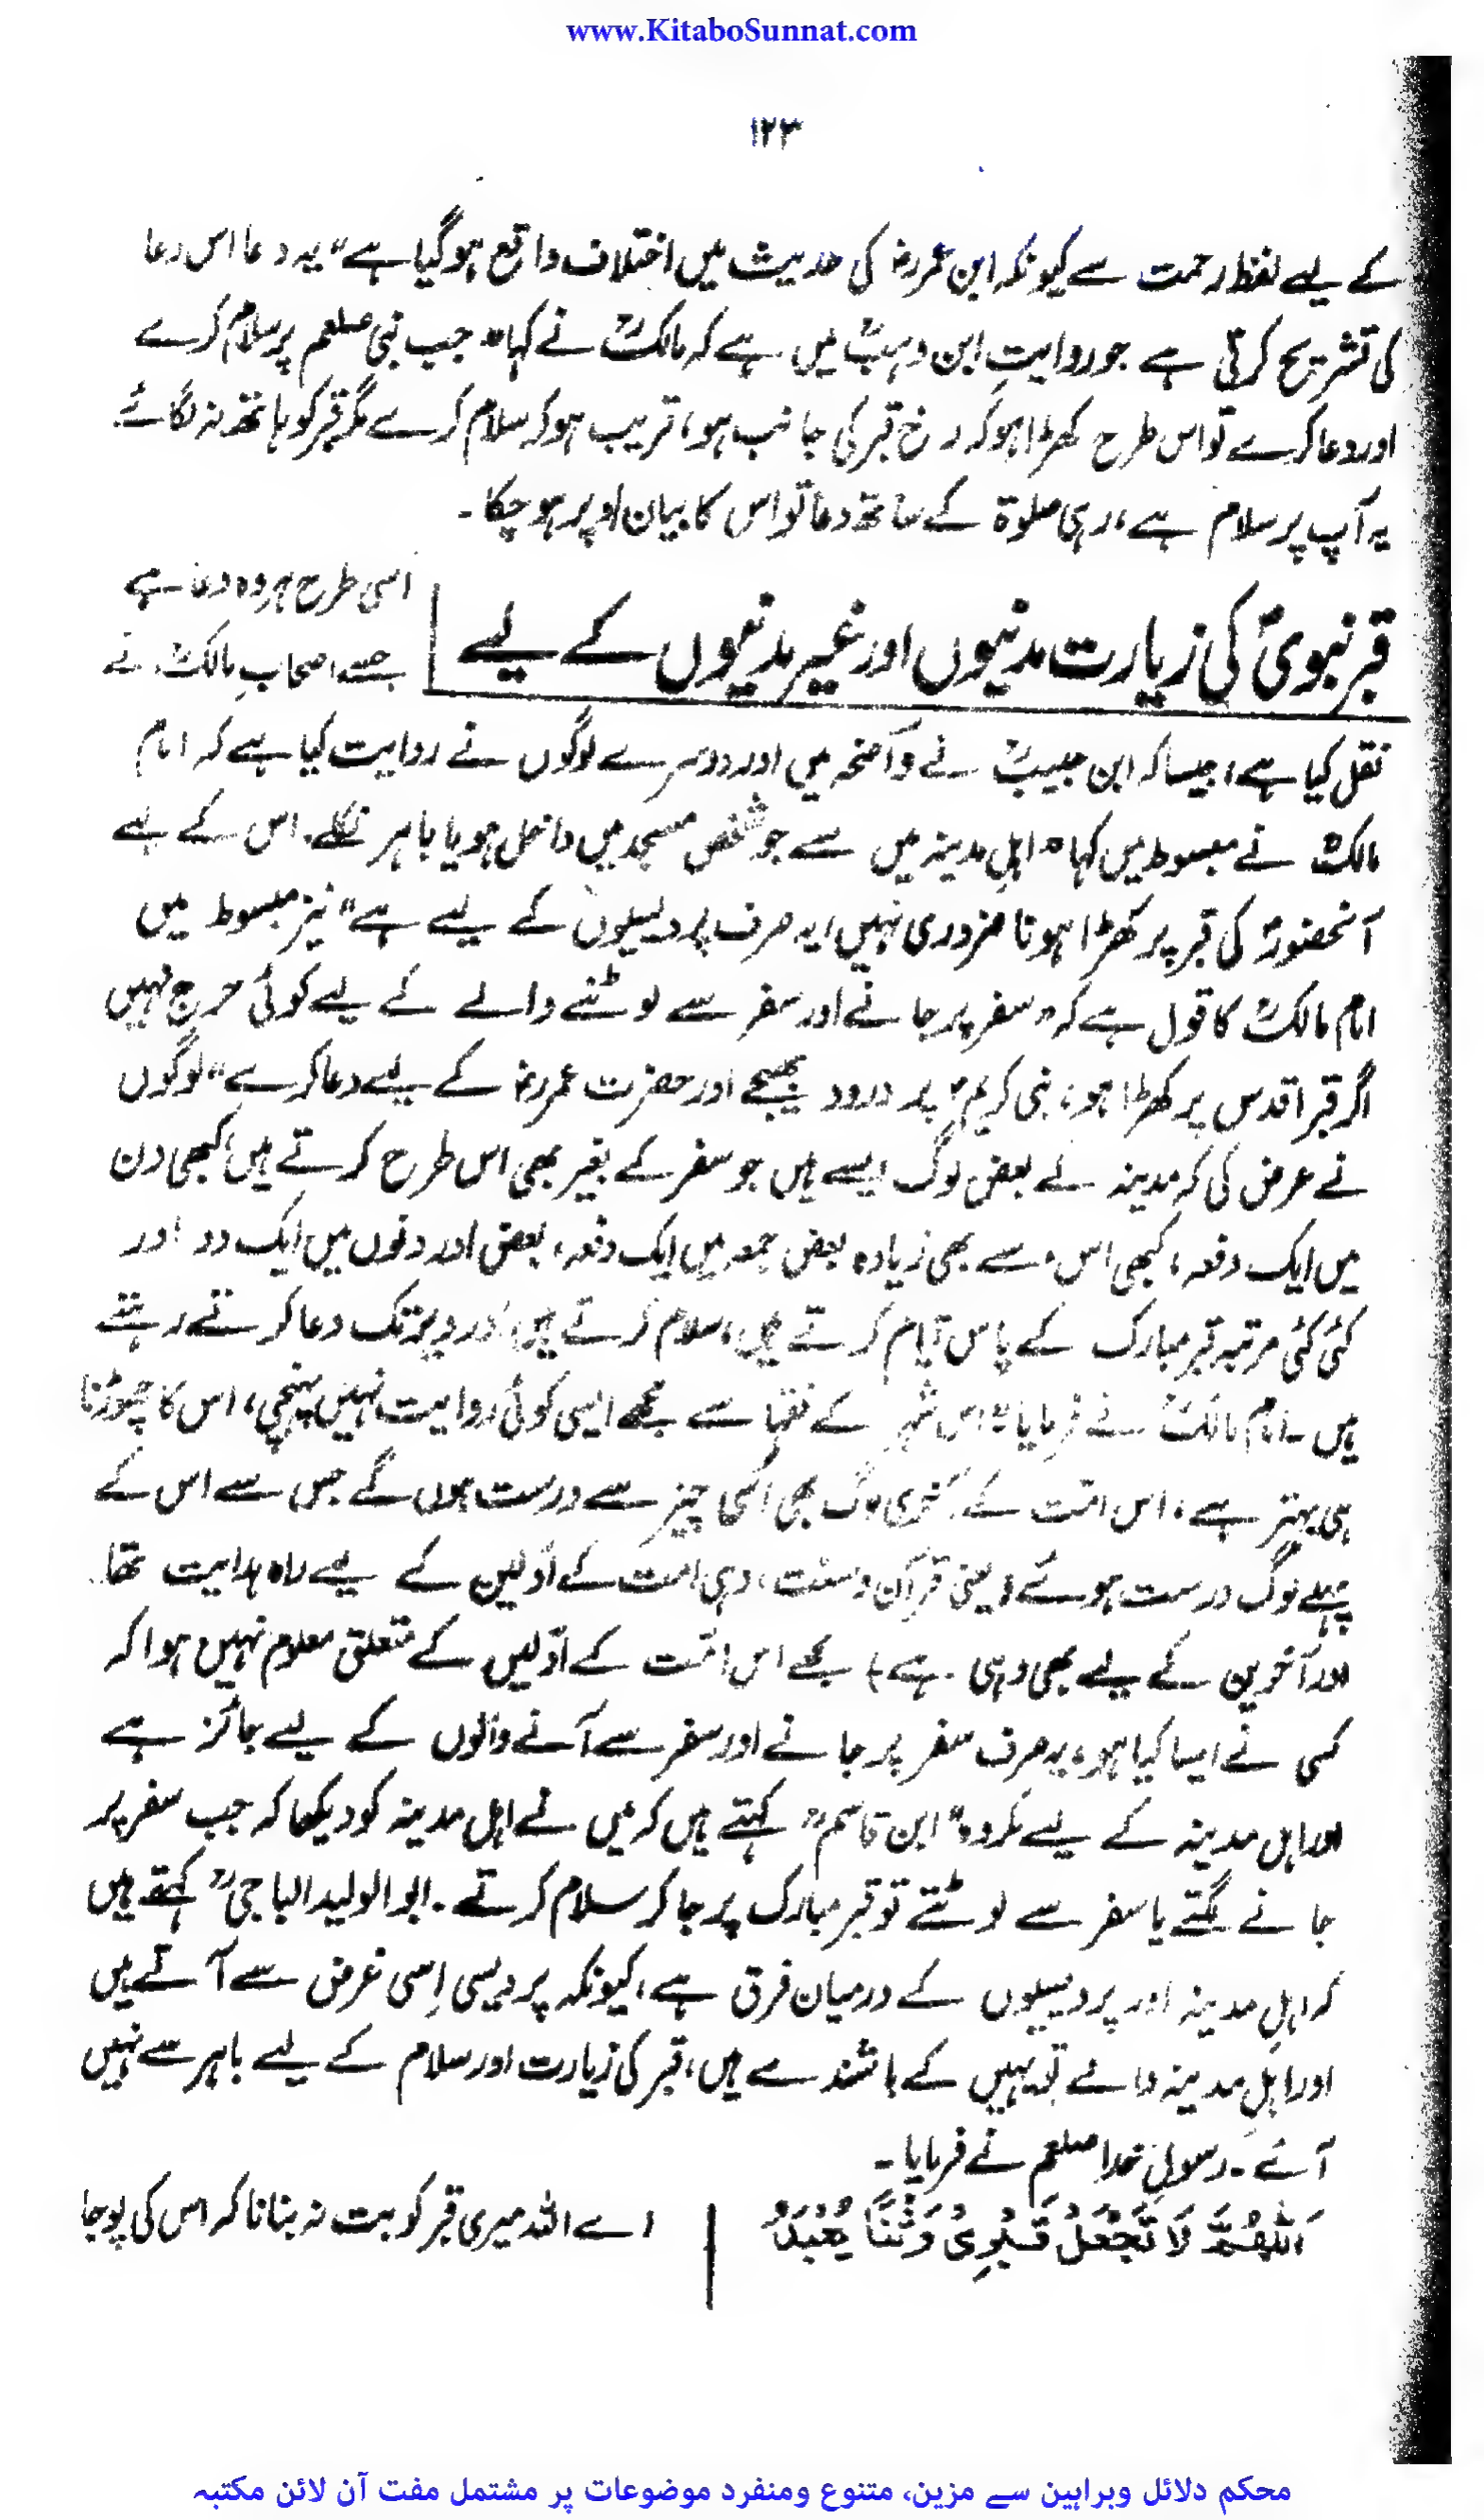 www.KitaboSunnat.com
۱۲۳
کے لیے لفظ رحمت سے کیونکہ ابن عمررض کی حدیث میں اختلاف واقع ہوگیا ہے" یہ دعا اس دعا
کی تشریح کرتی ہے جو روایتِ ابن وہبؒ میں ہے کہ مالکؒ نے کہا" جب نبی صلعم پر سلام کرے
اور دعا کرے تو اس طرح کھڑا ہو کہ رخ قبر کی جانب ہو، قریب ہو کر سلام کرے مگر قبر کو ہاتھ نہ لگائے۔
یہ آپ پر سلام ہے، رہی صلوۃ کے ساتھ دعا تو اس کا بیان اوپر ہو چکا۔
قبر نبویؐ کی زیارت مدنیوں اور غیر مدنیوں کے لیے
اسی طرح ہر وہ دعا ہے
جسے اصحابِ مالکؒ نے
نقل کیا ہے، جیسا کہ ابن حبیبؒ نے واضحہ میں اور دوسرے لوگوں نے روایت کیا ہے کہ امام
مالکؒ نے مبسوط میں کہا" اہلِ مدینہ میں سے جو شخص مسجد میں داخل ہو یا باہر نکلے۔ اس کے لیے
آنحضورؐ کی قبر پر کھڑا ہونا ضروری نہیں، یہ صرف پردیسیوں کے لیے ہے" نیز مبسوط میں
امام مالکؒ کا قول ہے کہ" سفر پر جانے اور سفر سے لوٹنے والے کے لیے کوئی حرج نہیں
اگر قبر اقدس پر کھڑا ہو، نبی کریمؐ پر درود بھیجے اور حضرت عمررض کے لیے دعا کرے" لوگوں
نے عرض کی کہ مدینہ کے بعض لوگ ایسے ہیں جو سفر کے بغیر بھی اس طرح کرتے ہیں، کبھی دن
میں ایک دفعہ، کبھی اس سے بھی زیادہ بعض جمعہ میں ایک دفعہ، بعض اور دنوں میں ایک دو اور
کئی کئی مرتبہ قبر مبارک کے پاس قیام کرتے ہیں، سلام کرتے ہیں اور دیر تک دعا کرتے رہتے
ہیں۔ امام مالکؒ نے فرمایا" اس شہر کے فقہا سے مجھے ایسی کوئی روایت نہیں پہنچی، اس کا چھوڑنا
ہی بہتر ہے، اس امّت کے آخری لوگ بھی اسی چیز سے درست ہوں گے جس سے اس کے
پہلے لوگ درست ہوئے (یعنی قرآن و سنت، وہی امت کے اوّلین کے لیے راہ ہدایت تھا
اور آخرین کے لیے بھی وہی ہے) مجھے اس امّت کے اوّلیں کے متعلق معلوم نہیں ہوا کہ
کسی نے ایسا کیا ہو، یہ صرف سفر پر جانے اور سفر سے آنے والوں کے لیے جائز ہے
اور اہل مدینہ کے لیے مکروہ" ابن قاسمؒ کہتے ہیں کہ میں نے اہل مدینہ کو دیکھا کہ جب سفر پر
جانے لگتے یا سفر سے لوٹتے تو قبر مبارک پر جا کر سلام کرتے۔ ابو الولید الباجیؒ کہتے ہیں
کہ اہلِ مدینہ اور پردیسیوں کے درمیان فرق ہے، کیونکہ پردیسی اِسی غرض سے آتے ہیں
اور اہلِ مدینہ والے تو یہیں کے باشندے ہیں، قبر کی زیارت اور سلام کے لیے باہر سے نہیں
آئے۔ رسولِ خدا صلعم نے فرمایا۔
اَللّٰهُمَّ لَا تَجْعَلْ قَبْرِیْ وَثَنًا یُعْبَدُ
اے اللہ میری قبر کو بت نہ بنانا کہ اس کی پوجا
محکم دلائل وبراہین سے مزین، متنوع ومنفرد موضوعات پر مشتمل مفت آن لائن مکتبہ